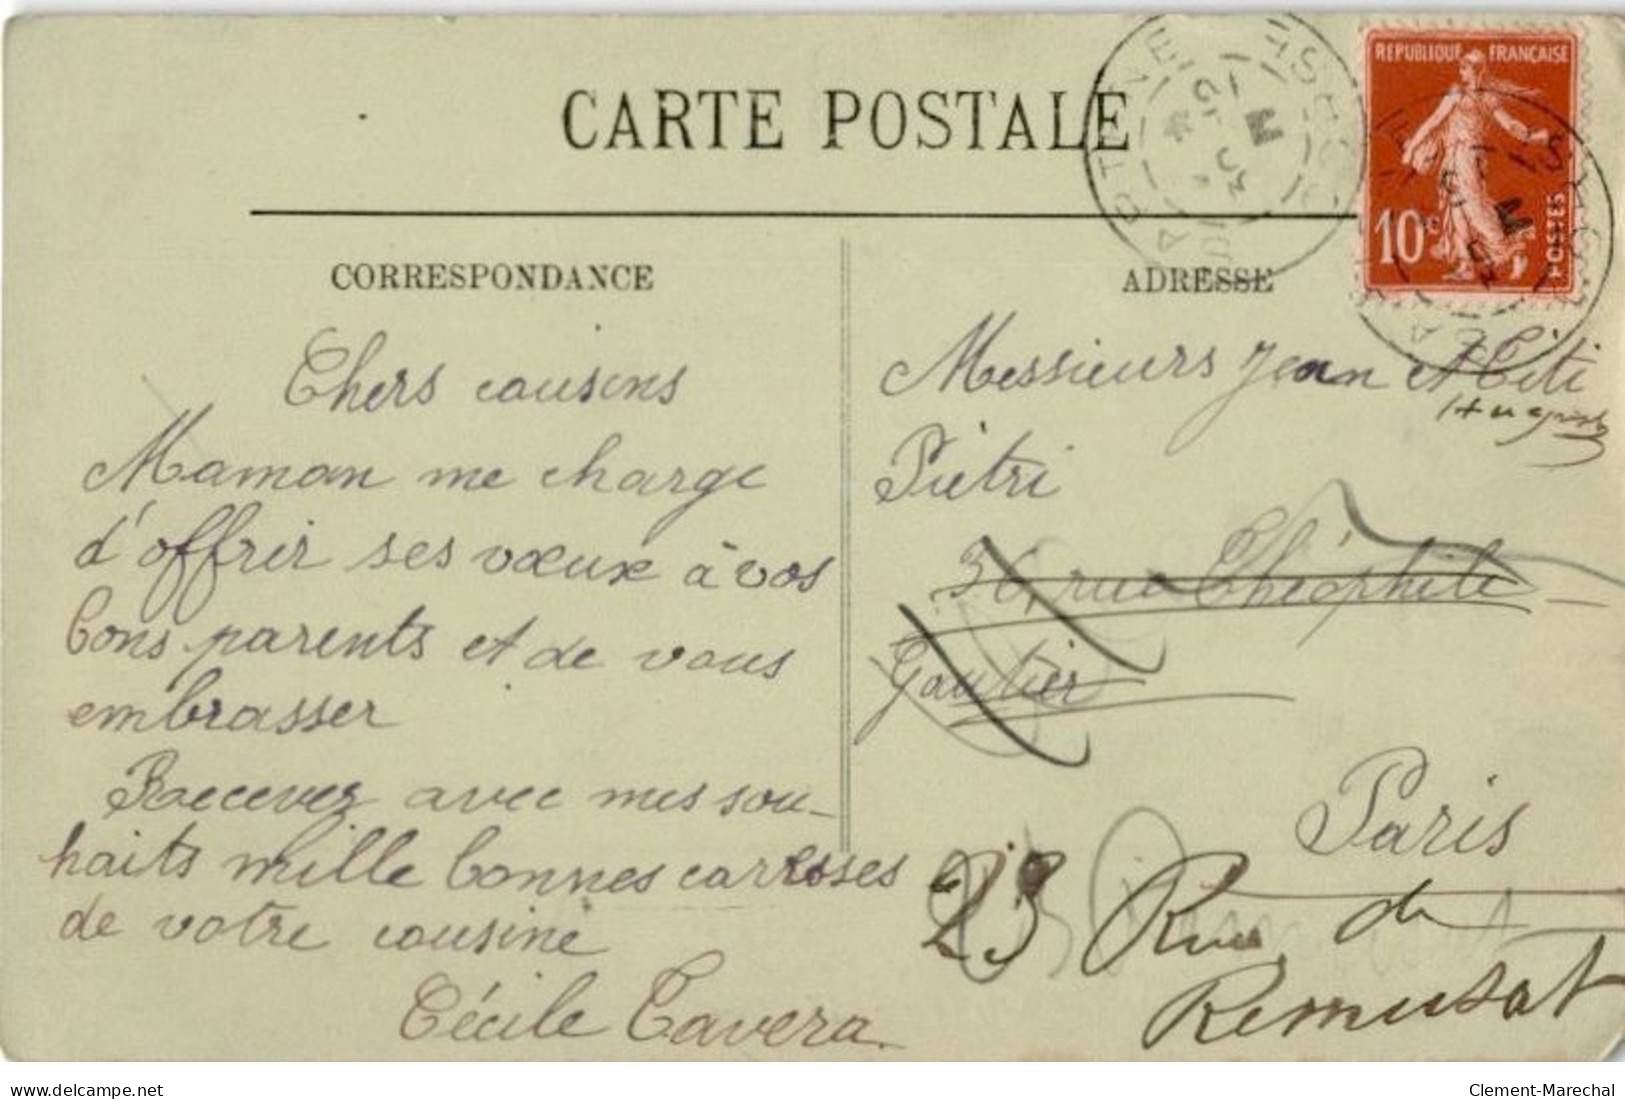 CARTE POSTALE
REPUBLIQUE FRANÇAISE
10c
POSTES
CORRESPONDANCE
Chers cousins
Maman me charge
d'offrir ses vœux à vos
bons parents et de vous
embrasser
Recever avec mes sou-
haits mille bonnes carresses
de votre cousine
Cécile Tavera
ADRESSE
Messieurs Jean et Titi
Piétri
36, rue Théophile
Gautier
Paris
23 Rue de
Remusat
delcampe.net
Clement-Marechal